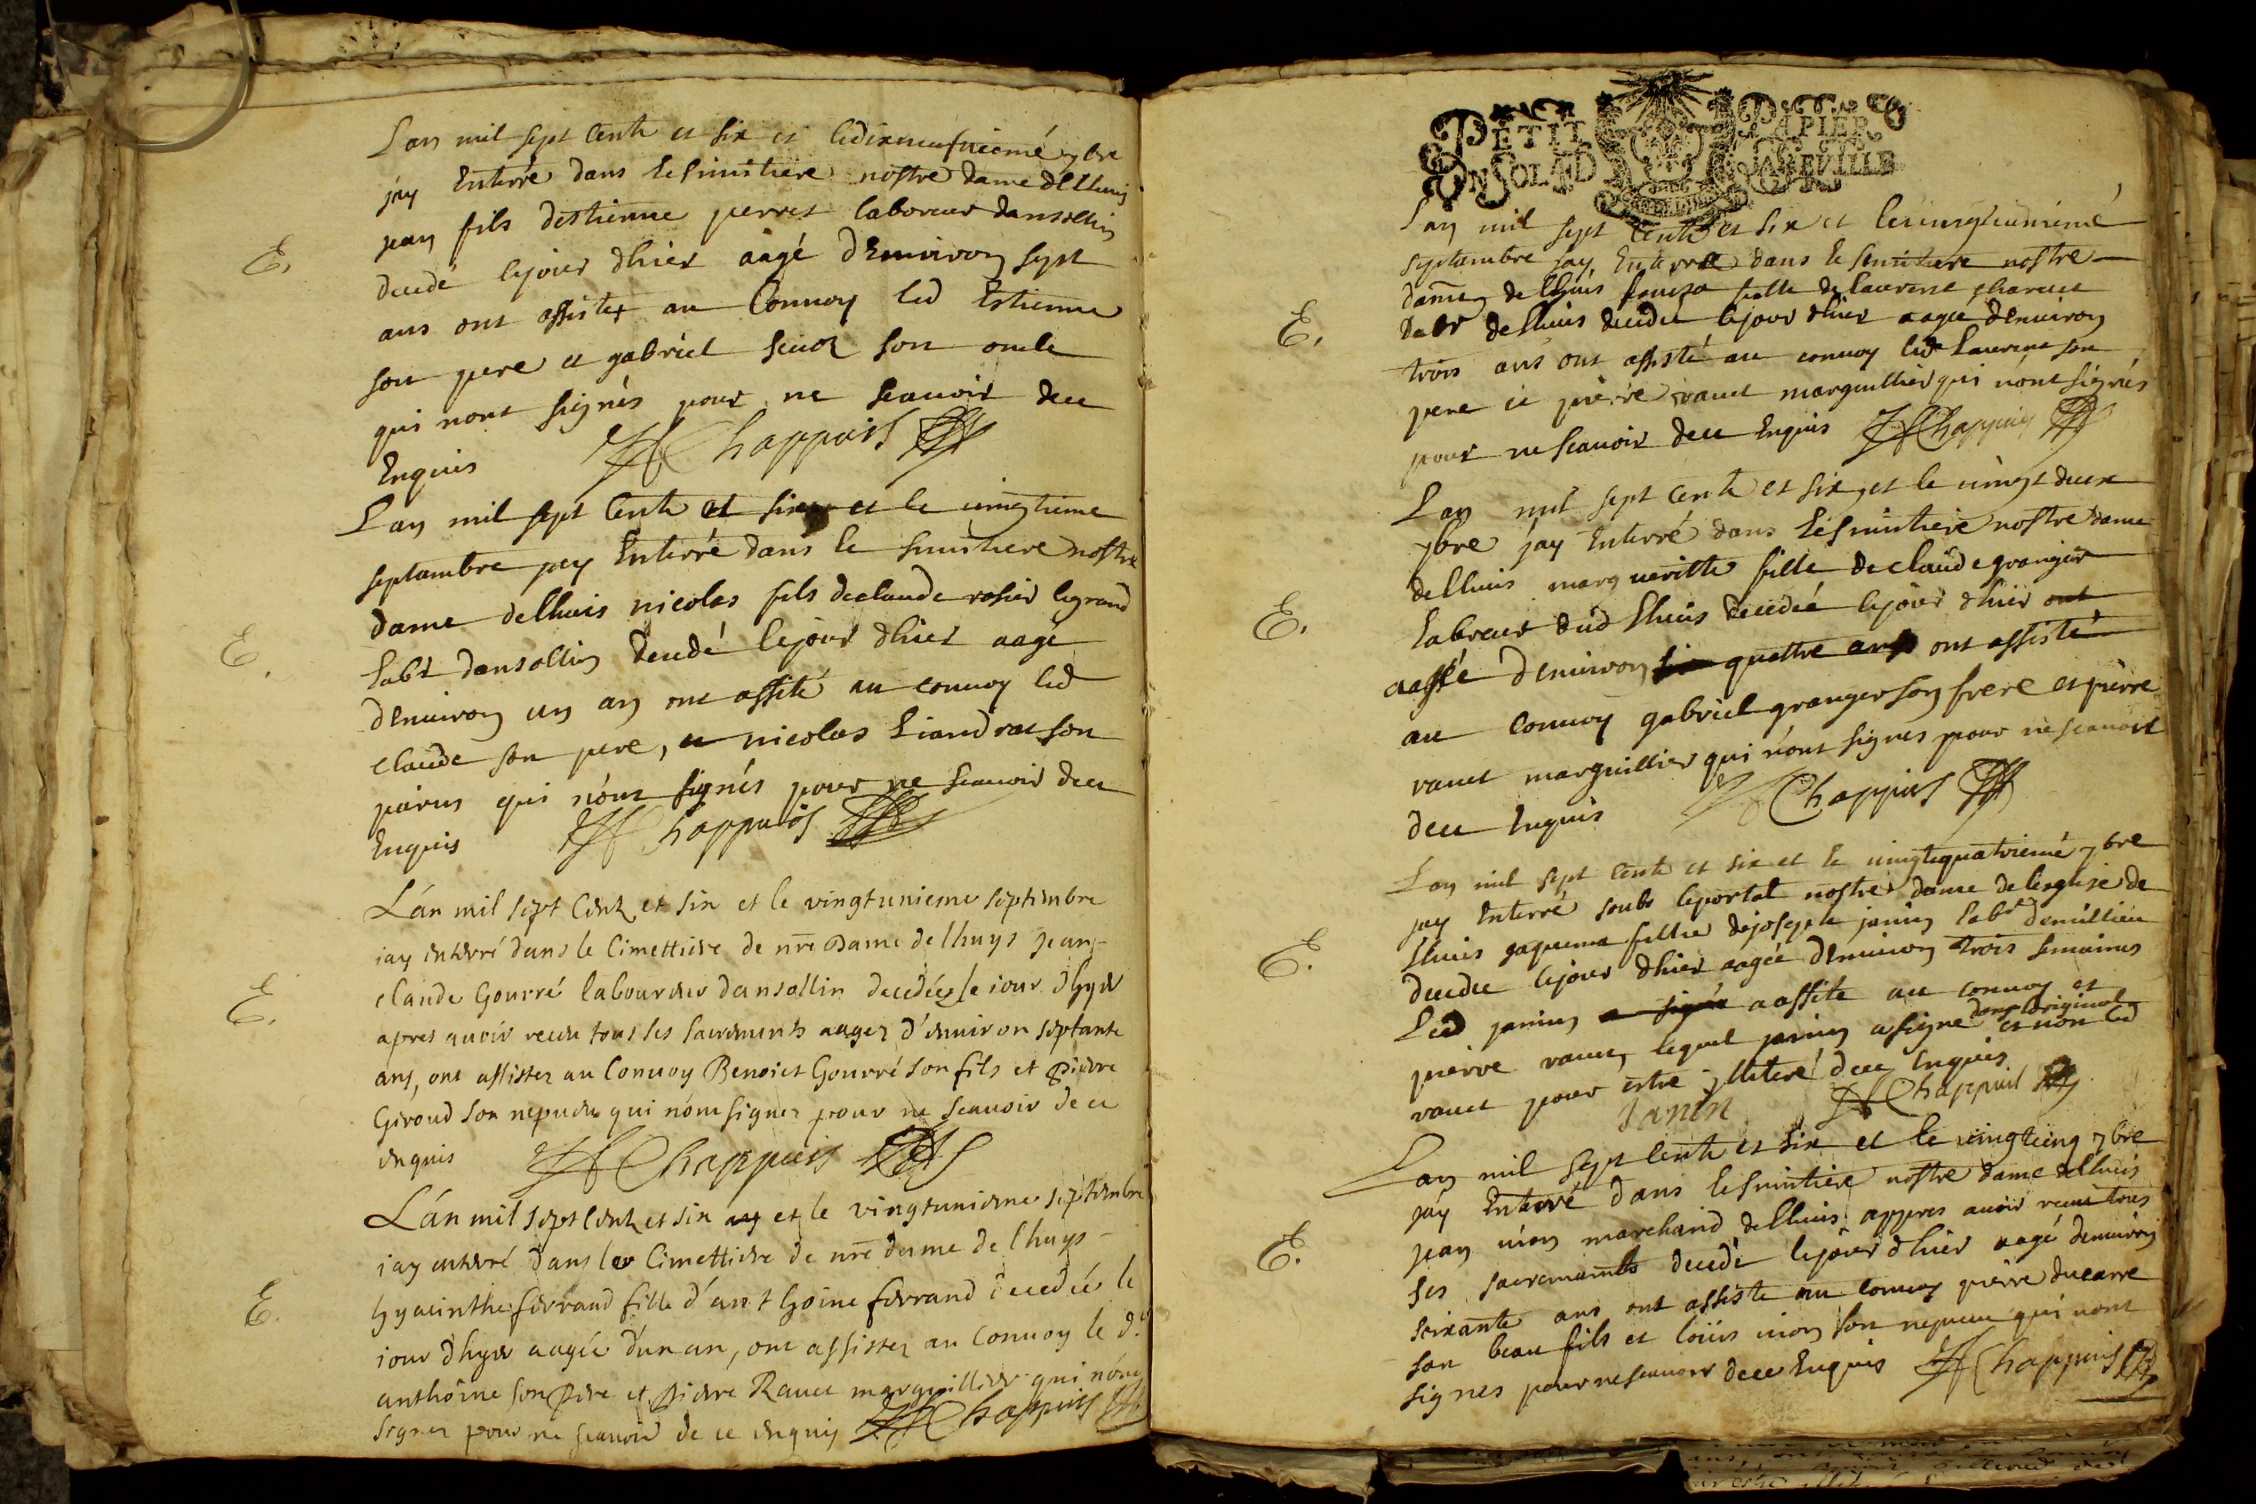 Lan mil sept Cents et six et ledixneufviemé 7bre
jay Enterré dans Le simitiere nostre dame dElhuis
jean fils destienne perret laboreur dansollin
decedé lejour dhier aagé dEnuiron sept
E.
ans ont assistez au Conuoy led Estienne
son pere et gabriel son oncle
qui nont signés pour ne scauoir deu
Enquis HChappuis
Lan mil sept Cents et six et le uingtieme
septambre jay Enterré dans le simitiere nostre
dame delhuis nicolas fils declaude rosier legrand
E.
Labr dansollin decedé lejour dhier aagé
dEnuiron un an ont assité au conuoy led
claude son pere, et nicolas Liandrat son
parens qui nónt signés pour ne scauoir deu
Enquis HChappuis
Lán mil sept Cents et six et le vingtunieme septembre
iay enterré dans le Cimettiere de nre Dame de lhuys jean
claude Gourré laboureur dansollin decedée le iour dhyer
E.
apres auoir receu tous les sacrements aagez d'enuiron septante
ans, ont assistez au Conuoy Benoict Gourré son fils et Pierre
Giroud son nepueu qui nónt signez pour ne scauoir de ce
enquis HChappuis
Lán mil sept Cents et six et le vingtunieme septembre
iay enterré dans le Cimettiere de nre dame de lhuys
hyacinthe ferrand fille d'anthoine ferrand decedée le
E.
iour dhyer aagée d'un an, ont assistez au Conuoy le d.
anthoine son pere et pierre Rauet marguillier qui nónt
signez pour ne scauoir de ce enquis HChappuis
PETIT PAPIER
UN SOL LAD JAFEUILLE
Lan mil sept Cents et six et leuingtunieme
septambre jay Enterré dans le simitiere nostre
dame delhuis fille de laurent charuet
E.
Labr delhuis decedée lejour dhier aagée dEnuiron
trois ans ont assisté au conuoy led Laurent son
pere et pierre rauet marguillier qui nónt signés
pour ne scauoir deu Enquis HChappuis
Lan mil sept Cents et six, et le uingt deux
7bre jay Enterré dans Le simitiere nostre dame
delhuis margueritte fille de claude granger
E.
Labreur dud Lhuis decedée lejour dhier ont
aagée denuiron six quattre ans ont assisté
au Conuoy gabriel granger son frere et pierre
rauet marguillier qui nónt signes pour ne scauoir
deu Enquis HChappuis
Lan mil sept Cents et six et le uingtquatriemé 7bre
jay Enterré soubs leportal nostre dame de leglise de
Lhuis jaquema fillie dejoseph janin Labr demillieu
E.
decedée lejour dhier aagée dEnuiron trois semaines
Led janin a signé a assité au conuoy et
pierre rauet, lequel janin a signe dans loriginal et non led
rauet pour estre jlliteré deu Enquis
Janin HChappuis
Lan mil sept Cents et six et le uingtcinq 7bre
jay Enterré dans le simitiere nostre dame delhuis
jean uion marchand delhuis appres auoir receu tous
E.
ses sacremants decedé lejour dhier aagé denuiron
soixante ans ont assisté au conuoy pierre ducarre
son beau fils et loüis uion son nepueu qui nont
signes pour ne scauoir deu Enquis HChappuis